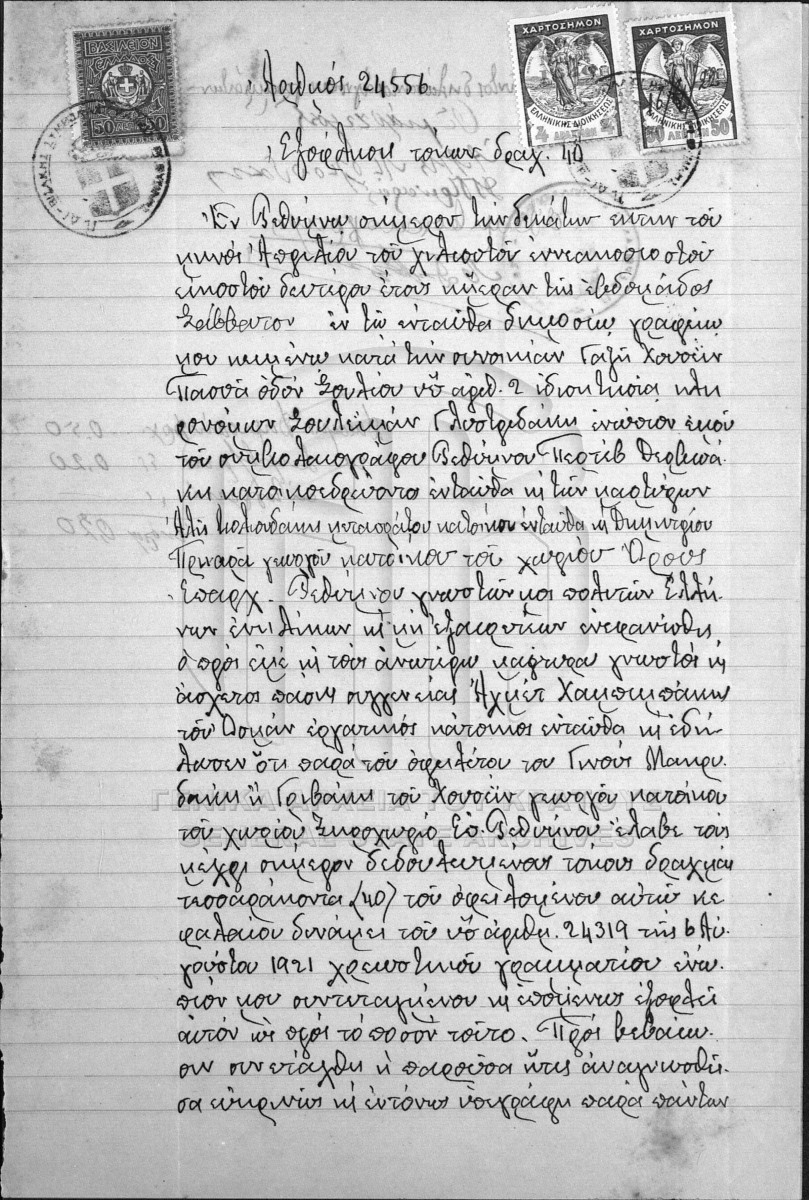 ΒΑΣΙΛΕΙΟΝ
ΕΛΛΑΔΟΣ
50 ΛΕΠΤΑ 50
ΧΑΡΤΟΣΗΜΟΝ
ΕΛΛΗΝΙΚΗΣ ΔΙΟΙΚΗΣΕΩΣ
ΧΑΡΤΟΣΗΜΟΝ
ΕΛΛΗΝΙΚΗΣ ΔΙΟΙΚΗΣΕΩΣ
50 ΛΕΠΤΩΝ 50
Αριθμός 24,556
Εξόφλησις τόκων δραχ. 40
Εν Ρεθύμνω σήμερον την δεκάτην έκτην του
μηνός Απριλίου του χιλιοστού εννεακοσιοστού
εικοστού δευτέρου έτους ημέραν της εβδομάδος
Σάββατον εν τω ενταύθα δημοσίω γραφείω
μου κειμένω κατά την συνοικίαν Γαζή Χουσεΐν
Πασσά οδόν Σουλίου υπ' αριθ. 2 ιδιοκτησία κλη
ρονόμων Σουλεϊμάν ενώπιον εμού
του συμβολαιογράφου Ρεθύμνου Περτέβ
κατοικοεδρεύοντος ενταύθα και των μαρτύρων
Αλή κατοίκου ενταύθα και Δημητρίου
Πρινάρα γεωργού κατοίκου του χωρίου Όρους
Επαρχ. Ρεθύμνου γνωστών μοι πολιτών Ελλή
νων ενηλίκων και μη εξαιρετέων ενεφανίσθη
ο προς εμέ και τους ανωτέρω μάρτυρας γνωστός και
άσχετος πάσης συγγενείας Αχμέτ
του Οσμάν εργατικός κάτοικος ενταύθα και εδή
λωσεν ότι παρά του οφειλέτου του Γινούς Μακρυ
δάκη ή Γριβάκη του Χουσεΐν γεωργού κατοίκου
του χωρίου Επ. Ρεθύμνου έλαβε τους
μέχρι σήμερον δεδουλευμένους τόκους δραχμάς
τεσσαράκοντα (40) του οφειλομένου αυτώ κε
φαλαίου δυνάμει του υπ' αριθμ. 24319 της 6 Αυ
γούστου 1921 χρεωστικού γραμματίου ενώ
πιόν μου συντεταγμένου και επομένως εξοφλεί
αυτόν ως προς το ποσόν τούτο. Προς βεβαίω
σιν συνετάχθη η παρούσα ήτις αναγνωσθεί
σα ευκρινώς και εντόνως υπεγράφη παρά πάντων
ΓΕΝΙΚΑ ΑΡΧΕΙΑ ΤΟΥ ΚΡΑΤΟΥΣ
GENERAL STATE ARCHIVES